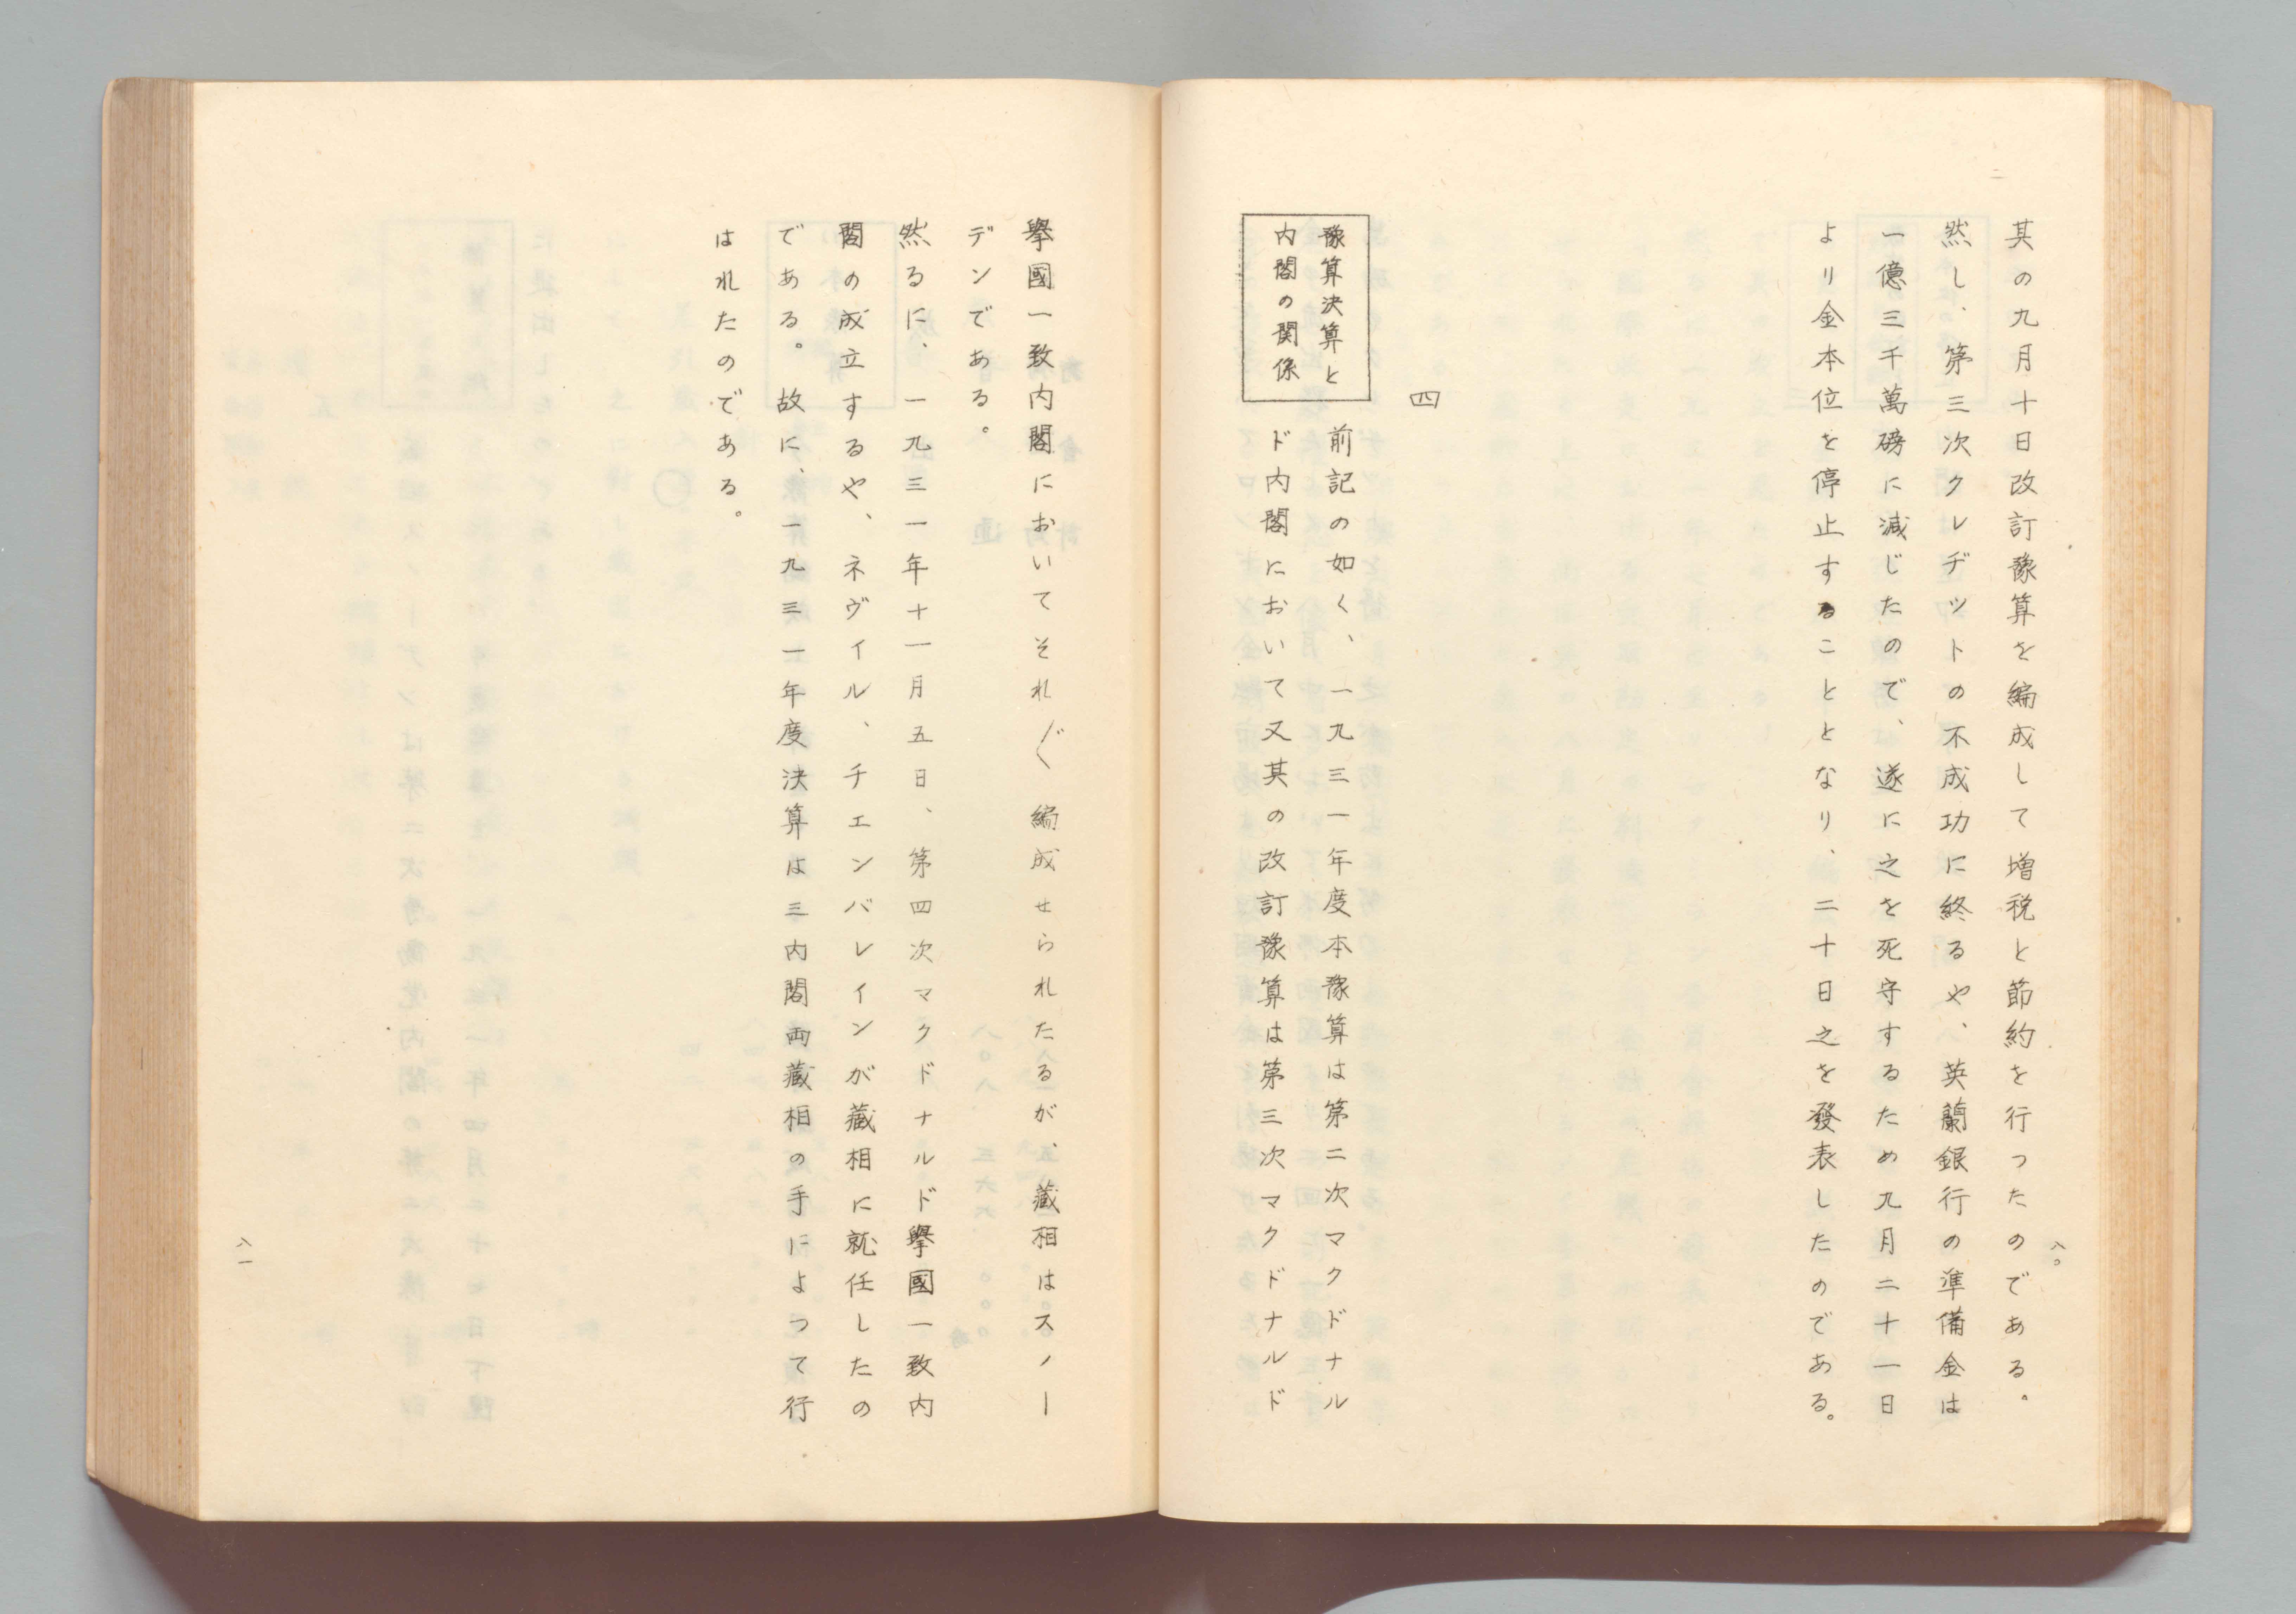 八〇
其の九月十日改訂豫算を編成して増税と節約を行つたのである。
然し、第三次クレヂットの不成功に終るや、英蘭銀行の準備金は
一億三千萬磅に減じたので、遂に之を死守するため九月二十一日
より金本位を停止することとなり、二十日之を發表したのである。
四
豫算決算と
内閣の関係
前記の如く、一九三一年度本豫算は第二次マクドナル
ド内閣において又其の改訂豫算は第三次マクドナルド
擧國一致内閣においてそれ〴〵編成せられたるが、藏相はスノー
デンである。
然るに、一九三一年十一月五日、第四次マクドナルド擧國一致内
閣の成立するや、ネヴイル、チエンバレインが藏相に就任したの
である。故に、一九三一年度決算は三内閣両藏相の手によつて行
はれたのである。
八一